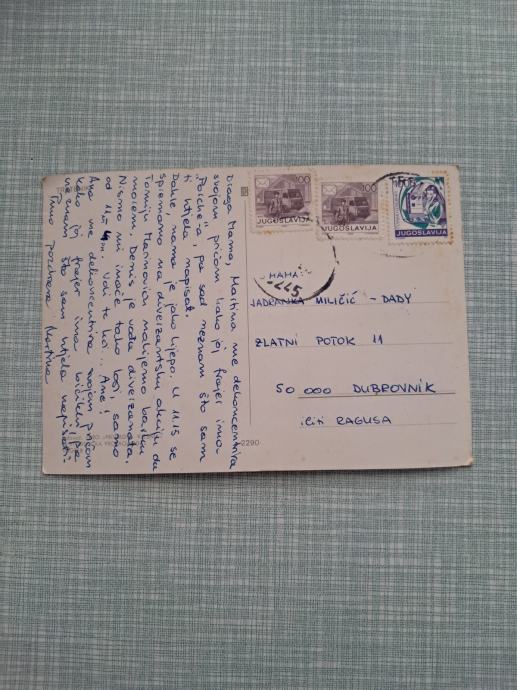 Draga Mama, Martina me dekoncentrira
svojom pričom kako joj frajer ima
"Porche-a", pa sad neznam što sam
ti htjela napisat.
Dakle, nama je jako lijepo. U 11.15 se
spremamo na diverzantsku akciju da
Tomiju Marinovići malijemo bocu
morem. Denis je vođa diverzanata.
Nismo mi inače tako losi, samo
od 11.15 h. Vidi te koi... Ane!
Ana me dekoncentrira svojom pričom
kako joj frajer ima bicikin! pa
neznam što sam htjela napisati.
Puno pozdrava Martina
100
JUGOSLAVIJA
100
JUGOSLAVIJA
JUGOSLAVIJA
MAMA:
JADRANKA MILIČIĆ - DADY
ZLATNI POTOK 11
50 000 DUBROVNIK
iliti RAGUSA
2290